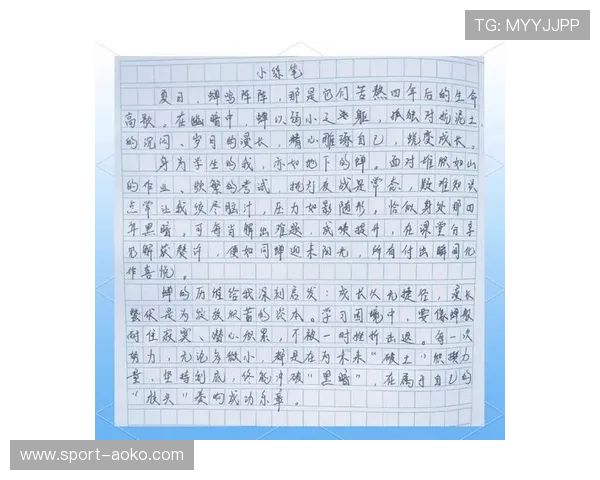 TG: MYYJJPP
小练笔
夏日，蝉鸣阵阵，那是它们苦熬四年后的生命
高歌。在幽暗中，蝉以弱小之躯，孤独对抗泥土
的沉闷、岁月的漫长，精心雕琢自己，蜕变成长。
身为学生的我，亦如地下的蝉。面对堆积如山
的作业、频繁的考试，挑灯夜战是常态，疑难知识
点常让我绞尽脑汁，压力如影随形，恰似身处那四
年黑暗。可每当解出难题，成绩提升，在课堂分享
见解获赞许，便如同蝉迎来阳光，所有付出瞬间化
作喜悦。
蝉的历程给我深刻启发：成长从无捷径，漫长
蛰伏是为绽放积蓄的资本。学习困境中，要像蝉般
耐住寂寞、潜心积累，不被一时挫折击退。每一次
努力，无论多微小，都是在为未来“破土”积攒力
量，坚持到底，终能冲破“黑暗”，在属于自己的
“枝头”奏响成功乐章。
www.sport-aoko.com